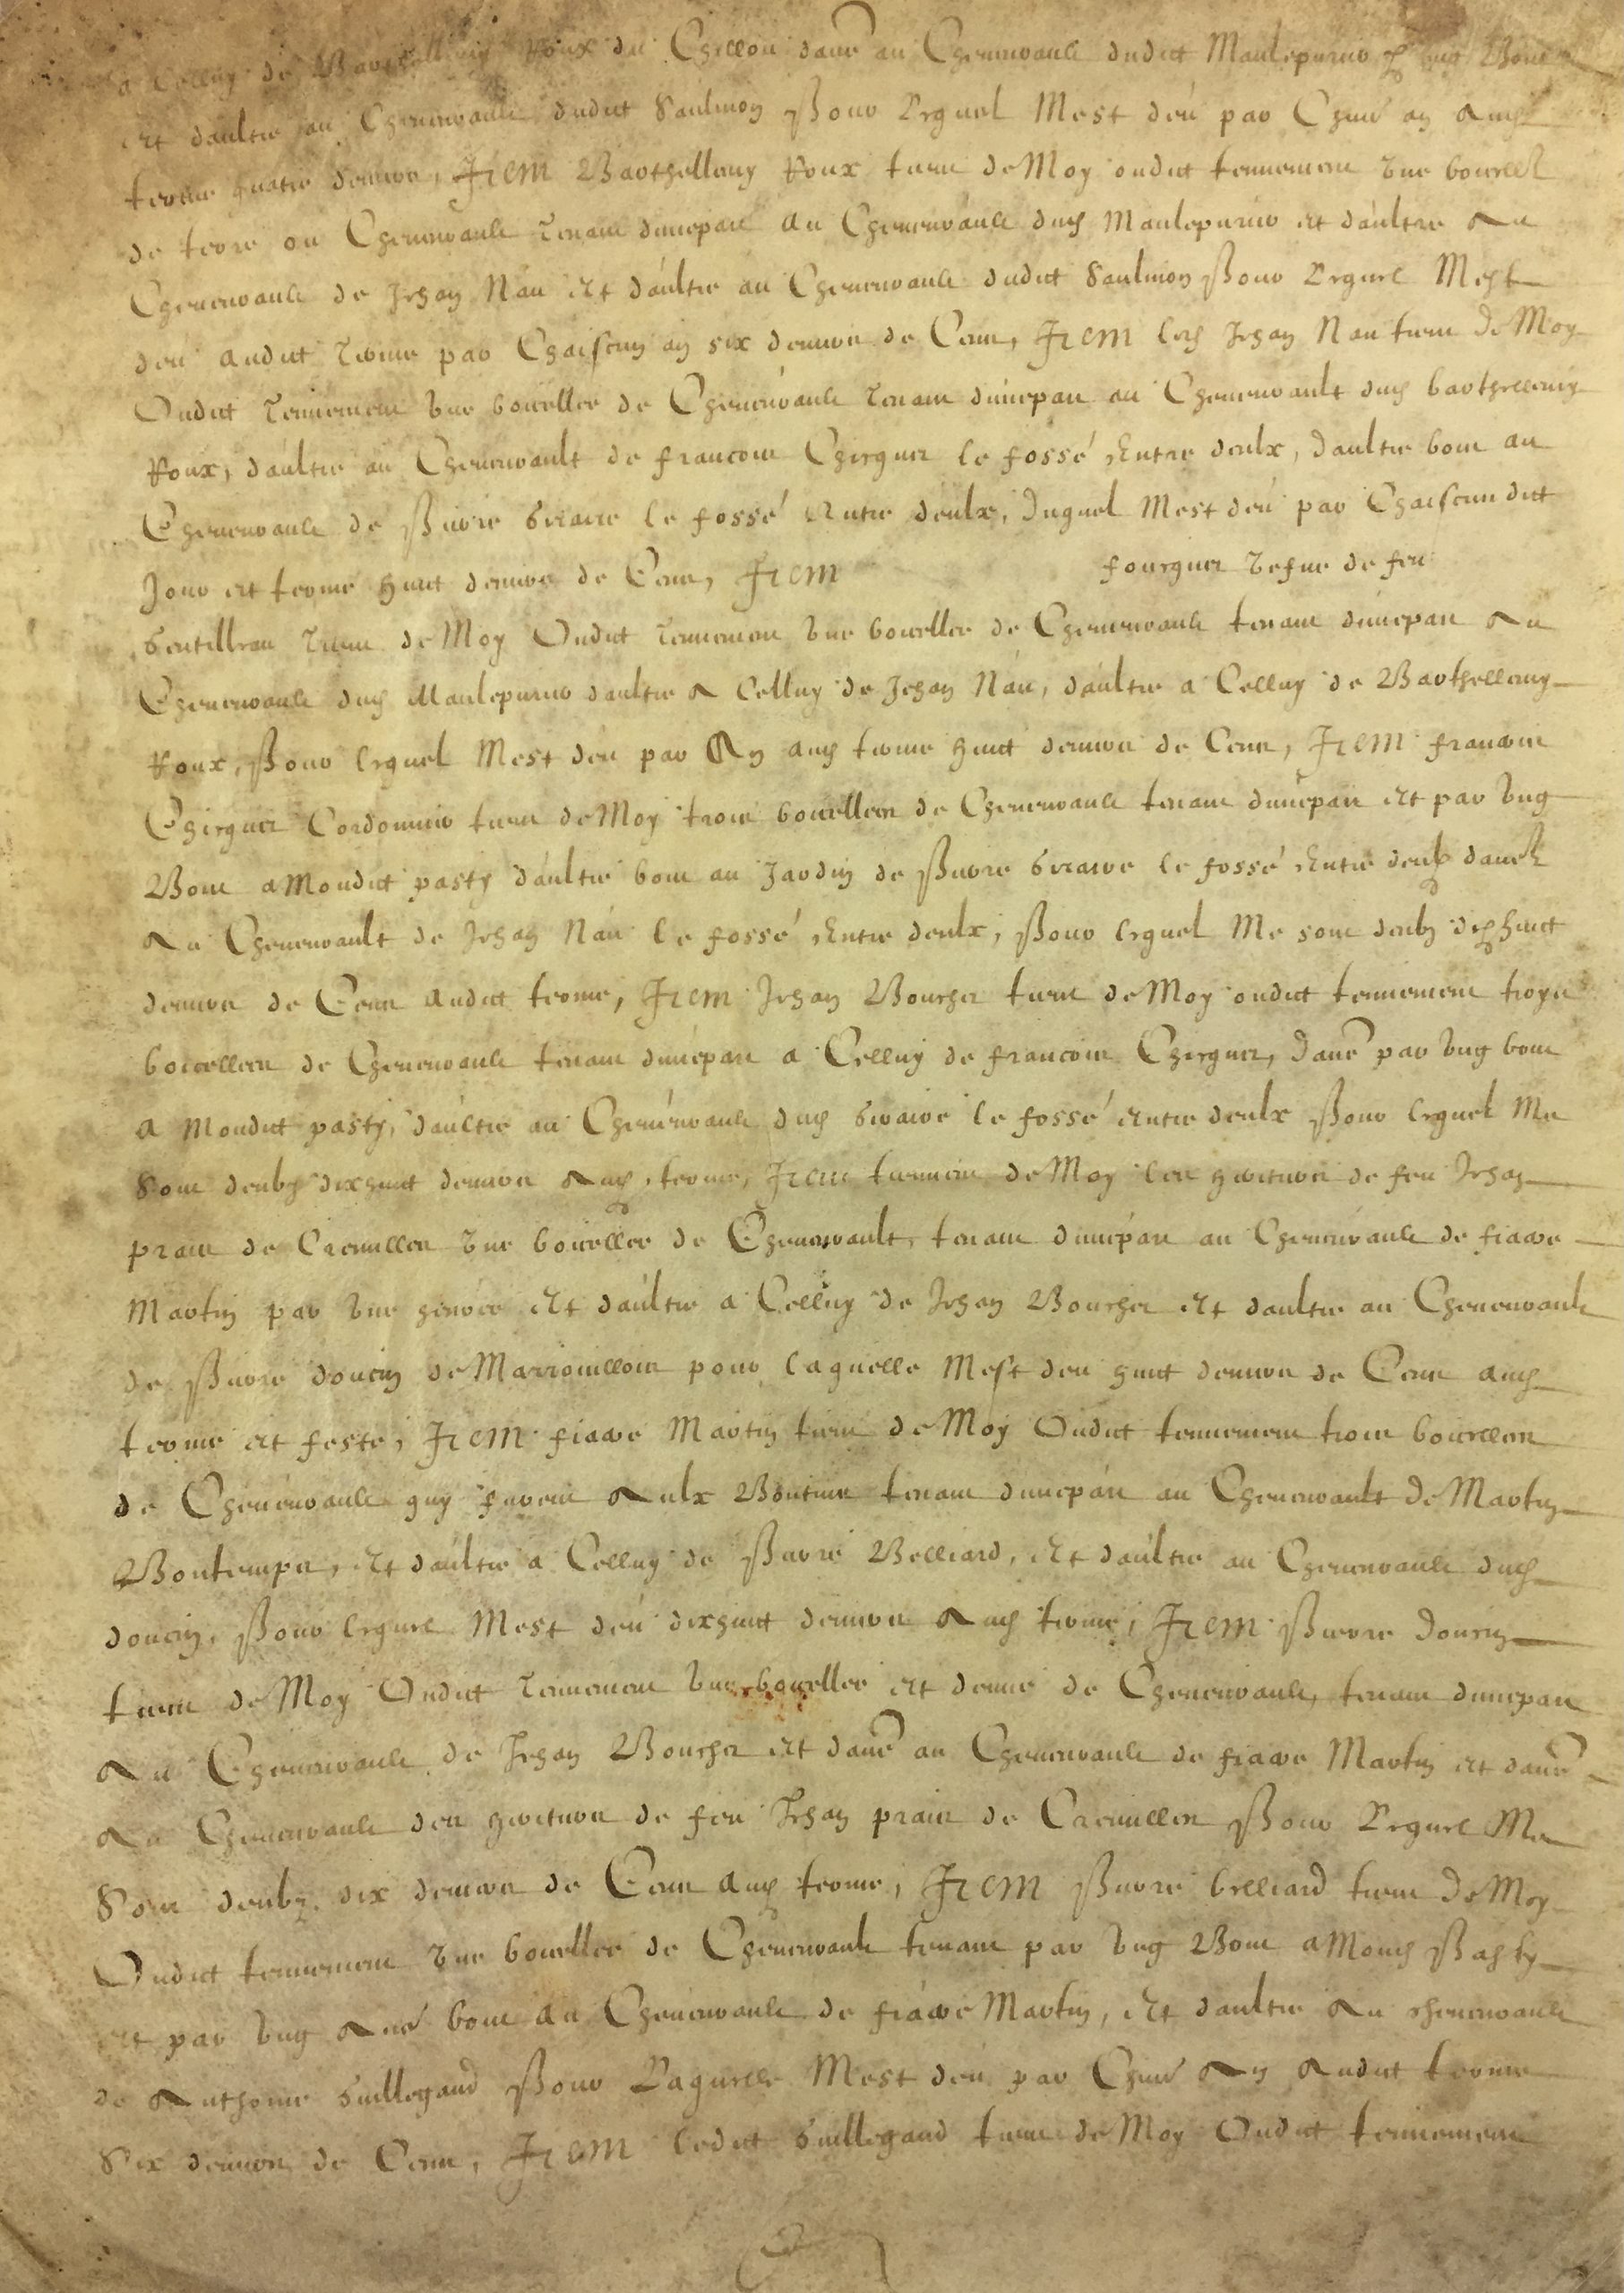 a Celluy de Barthellemy Roux du Chillou daue au Chenevault dudict Maulepurier p ung Bout
et daultre au Chenevault dudict Saulmon Pour lequel Mest deu par Chun an aud
terme quatre deniers, Item Barthellemy Roux tient de Moy oudict tenement une boicell
de terre ou Chenevault tenant dunepart au Chenevault dud Maulepurier et daultre Au
Chenevault de Jehan Nau et daultre au Chenevault dudict Saulmon Pour lequel Mest
deu audict terme par Chaiscun an six deniers de Cens, Item led Jehan Nau tient de Moy
Oudict tenement une boicellee de Chenevault tenant dunepart au Chenevault dud barthellemy
Roux, daultre au Chenevault de francois Chesquier le fossé Entre deulx, daultre bout au
Chenevault de Pierre Giraire le fossé Entre deulx, Duquel Mest deu par Chaiscun dict
Jour et terme huict deniers de Cens, Item fourquer vefue de feu
Gentilleau tient de Moy Oudict tenement une boicellee de Chenevault tenant dunepart Au
Chenevault dud Maulepurier daultre A Celluy de Jehan Nau, daultre a Celluy de Barthellemy
Roux, Pour lequel Mest deu par An aud terme huict deniers de Cens, Item francois
Chesquier Cordonnier tient de Moy trois boicellees de Chenevault tenant dunepart et par ung
Bout a Mondict pasty daultre bout au Jardin de Pierre Giraire le fossé Entre deulx dault
Au Chenevault de Jehan Nau le fossé Entre deulx, Pour lequel Me sont deubz dixhuict
deniers de Cens audict terme, Item Jehan Boucher tient de Moy oudict tenement troys
boicellees de Chenevault tenant dunepart a Celluy de francois Chesquier, Daue par ung bout
a Mondict pasty, daultre au Chenevault dud Giraire le fossé Entre deulx Pour lequel Me
Sont deubz dixhuict deniers Aud terme, Item tiennent de Moy les heritiers de feu Jehan
prain de Cremilles une boicellee de Chenevault, tenant dunepart au Chenevault de fiacre
Martin par une heriere et daultre a Celluy de Jehan Boucher et daultre au Chenevault
de Pierre doucin de Marrouillois pour laquelle Mest deu huict deniers de Cens aud
terme et feste, Item fiacre Martin tient de Moy Oudict tenement trois boicellees
de Chenevault quy furent Aulx Boutins tenant dunepart au Chenevault de Martin
Bontemps, et daultre a Celluy de Pierre Belliard, et daultre au Chenevault dud
doucin, Pour lequel Mest deu dixhuict deniers Aud terme, Item Pierre Doucin
tient de Moy Oudict tenement une boicellee et demie de Chenevault, tenant dunepart
Au Chenevault de Jehan Boucher et daue au Chenevault de fiacre Martin et daue
Au Chenevault des heritiers de feu Jehan prain de Cremilles Pour lequel Me
Sont deubz dix deniers de Cens aud terme, Item Pierre belliard tient de Moy
Oudict tenement une boicellee de Chenevault tenant par ung Bout a Mond Pasty
et par ung Aue bout au Chenevault de fiacre Martin, et daultre Au chenevault
de Anthoine Guillegaud Pour Laquelle Mest deu par Chun An Audict terme
Six deniers de Cens, Item ledict Guillegaud tient de Moy Oudict tenement